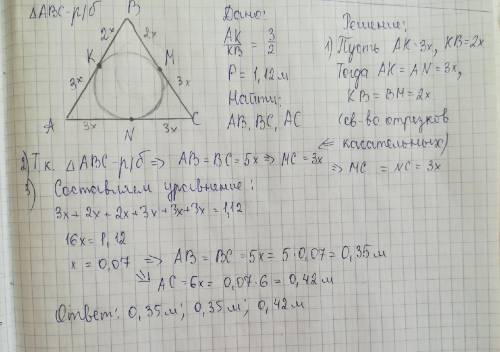 ΔABC-р/б
B
2x 2x
K M
3x 3x
A 3x N 3x C
Дано:
AK/KB = 3/2
P = 1,12 м
Найти:
AB, BC, AC
Решение:
1) Пусть AK=3x, KB=2x
Тогда AK = AN = 3x,
KB = BM = 2x
(св-во отрезков
касательных)
2) Т.к. ΔABC-р/б => AB = BC = 5x => MC = 3x
=> MC = NC = 3x
3) Составляем уравнение:
3x + 2x + 2x + 3x + 3x + 3x = 1,12
16x = 1,12
x = 0,07 => AB = BC = 5x = 5·0,07 = 0,35 м
=> AC = 6x = 0,07·6 = 0,42 м
Ответ: 0,35 м; 0,35 м; 0,42 м